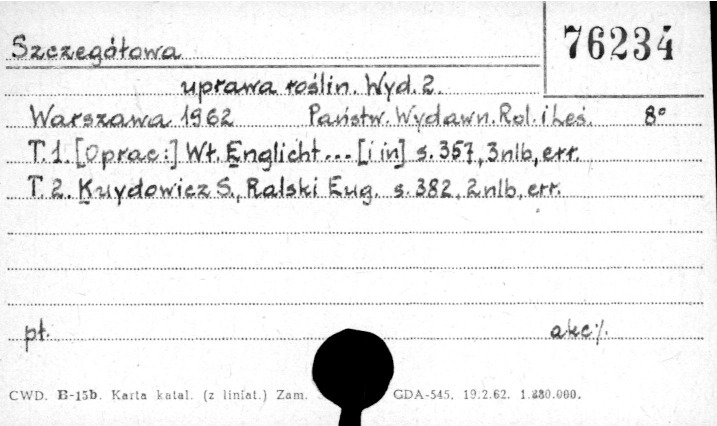 Szczegółowa
76234
uprawa roślin. Wyd. 2.
Warszawa 1962 Państw. Wydawn. Rol. i Leś. 8°
T. 1. [Oprac:] Wł. Englicht... [i in] s. 357, 3 nlb, err.
T. 2. Kuydowicz S., Ralski Eug. s. 382, 2 nlb, err.
pł. akc/.
CWD. B-15b. Karta katal. (z liniat.) Zam. GDA-545. 19.2.62. 1.880.000.